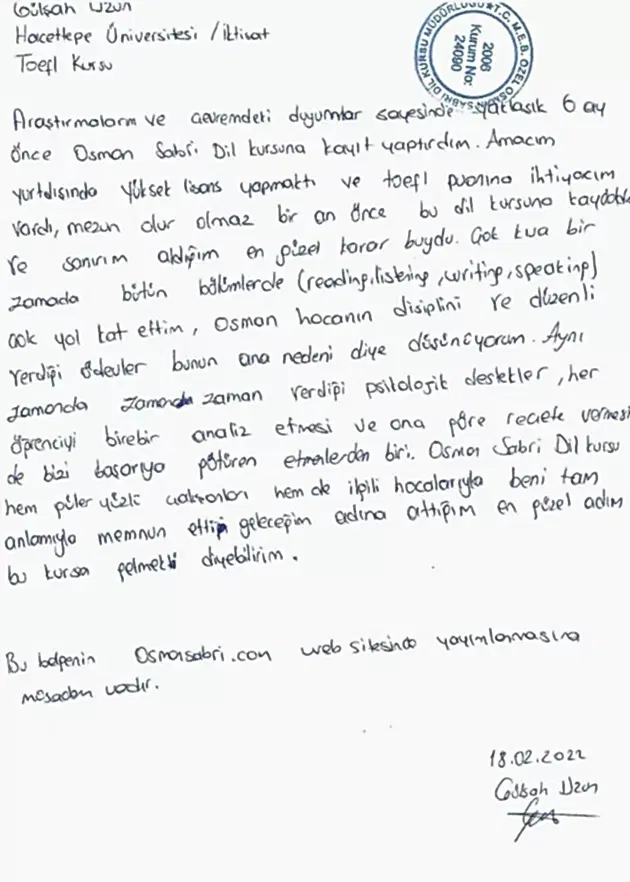 Gülşah Uzun
Hacettepe Üniversitesi / İktisat
Toefl Kursu
T.C. M.E.B. ÖZEL OSMAN SABRİ DİL KURSU MÜDÜRLÜĞÜ
2006
Kurum No:
24090
Araştırmalarım ve çevremdeki duyumlar sayesinde yaklaşık 6 ay
önce Osman Sabri Dil kursuna kayıt yaptırdım. Amacım
yurtdışında yüksek lisans yapmaktı ve toefl puanına ihtiyacım
vardı, mezun olur olmaz bir an önce bu dil kursuna kaydoldum
ve sanırım aldığım en güzel karar buydu. Çok kısa bir
zamada bütün bölümlerde (reading, listening, writing, speaking)
çok yol kat ettim, Osman hocanın disiplini ve düzenli
verdiği ödevler bunun ana nedeni diye düşünüyorum. Aynı
zamanda zamanda zaman verdiği psikolojik destekler, her
öğrenciyi birebir analiz etmesi ve ona göre reçete vermesi
de bizi başarıya götüren etmenlerden biri. Osman Sabri Dil kursu
hem güler yüzlü çalışanları hem de ilgili hocalarıyla beni tam
anlamıyla memnun ettip geleceğim adına attığım en güzel adım
bu kursa gelmekti diyebilirim.
Bu belgenin Osmansabri.com web sitesinde yayımlamasına
müsadem vardır.
18.02.2022
Gülşah Uzun